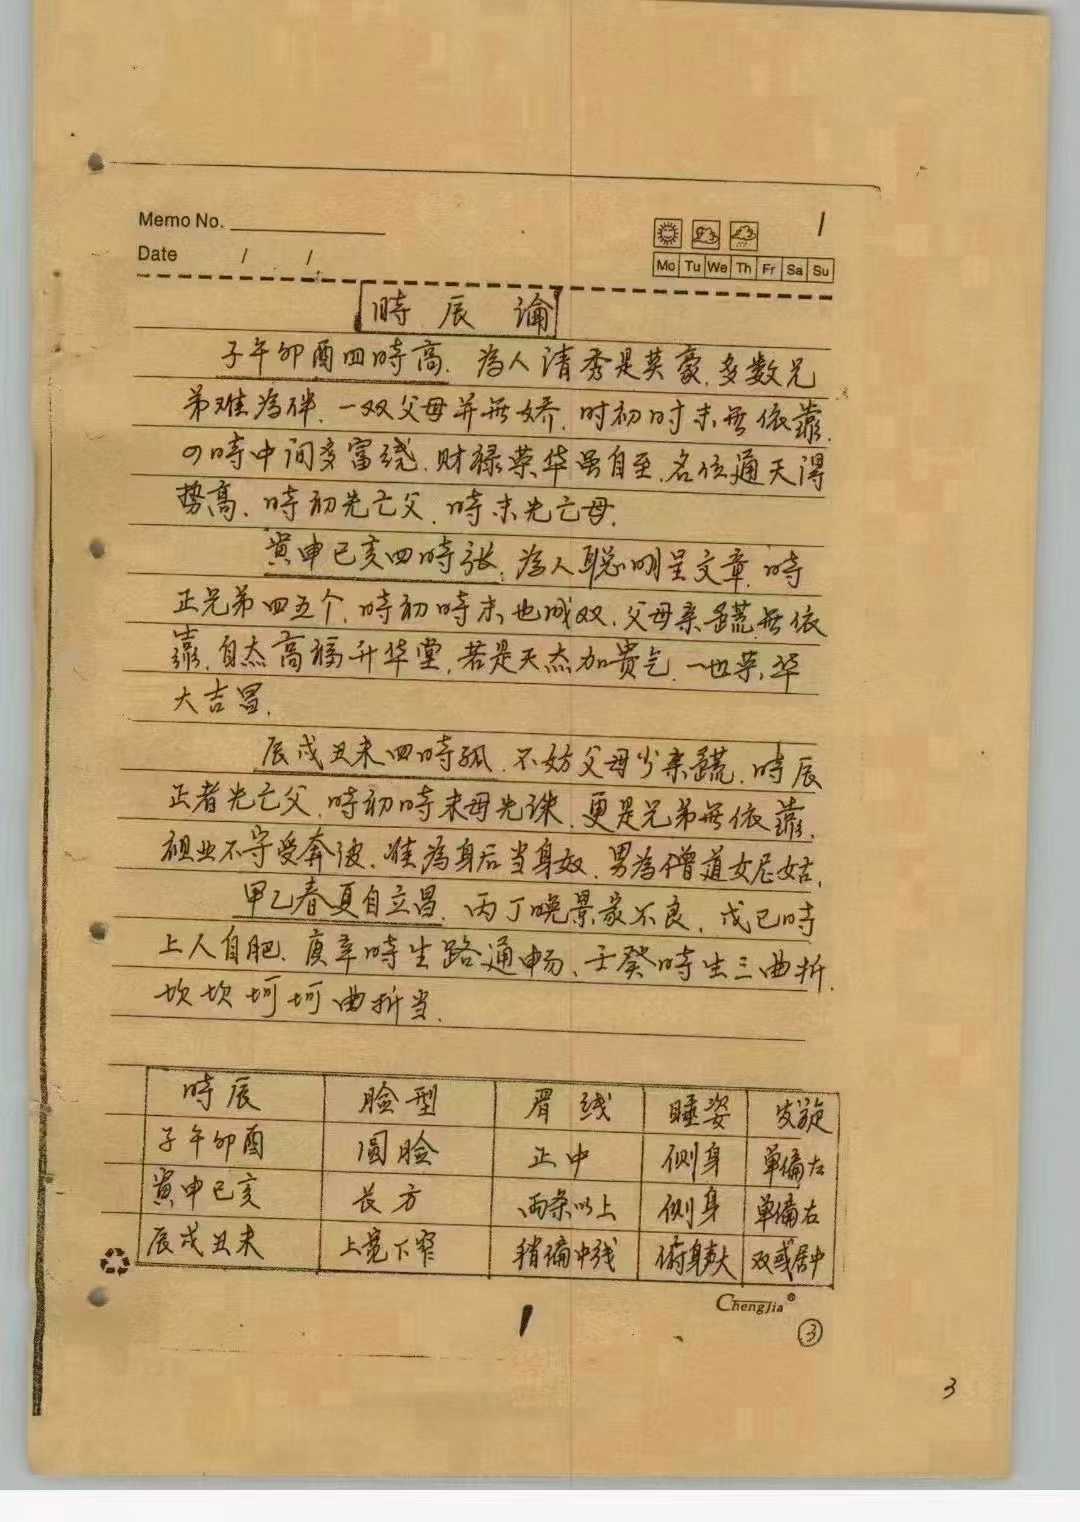 1
Memo No.
Date / /
Mo Tu We Th Fr Sa Su
時辰論
子午卯酉四時高.為人清秀是英豪.多數兄
弟难為伴.一双父母并無娇.时初时末無依靠.
时中间多富绕.财禄荣华虽自至.名位通天得
势高.時初先亡父.時末先亡母.
寅申巳亥四時张.為人聪明呈文章.時
正兄弟四五个.時初時末也成双.父母亲疏無依
靠.自杰高福升华堂.若是天杰加贵气.一世荣华
大吉昌.
辰戌丑未四時孤.不妨父母少亲疏.時辰
正者先亡父.時初時末母先诛.更是兄弟無依靠.
祖业不守受奔波.准為身后当身奴.男為僧道女尼姑.
甲乙春夏自立昌.丙丁晚景家不良.戊巳時
上人自肥.庚辛時生路通畅、壬癸時生三曲折.
坎坎坷坷曲折当.
時辰 脸型 眉线 睡姿 发旋
子午卯酉 圆脸 正中 侧身 单偏左
寅申巳亥 長方 两条以上 侧身 单偏右
辰戌丑未 上宽下窄 稍偏中线 俯身 双或居中
ChengJia®
1
③
3